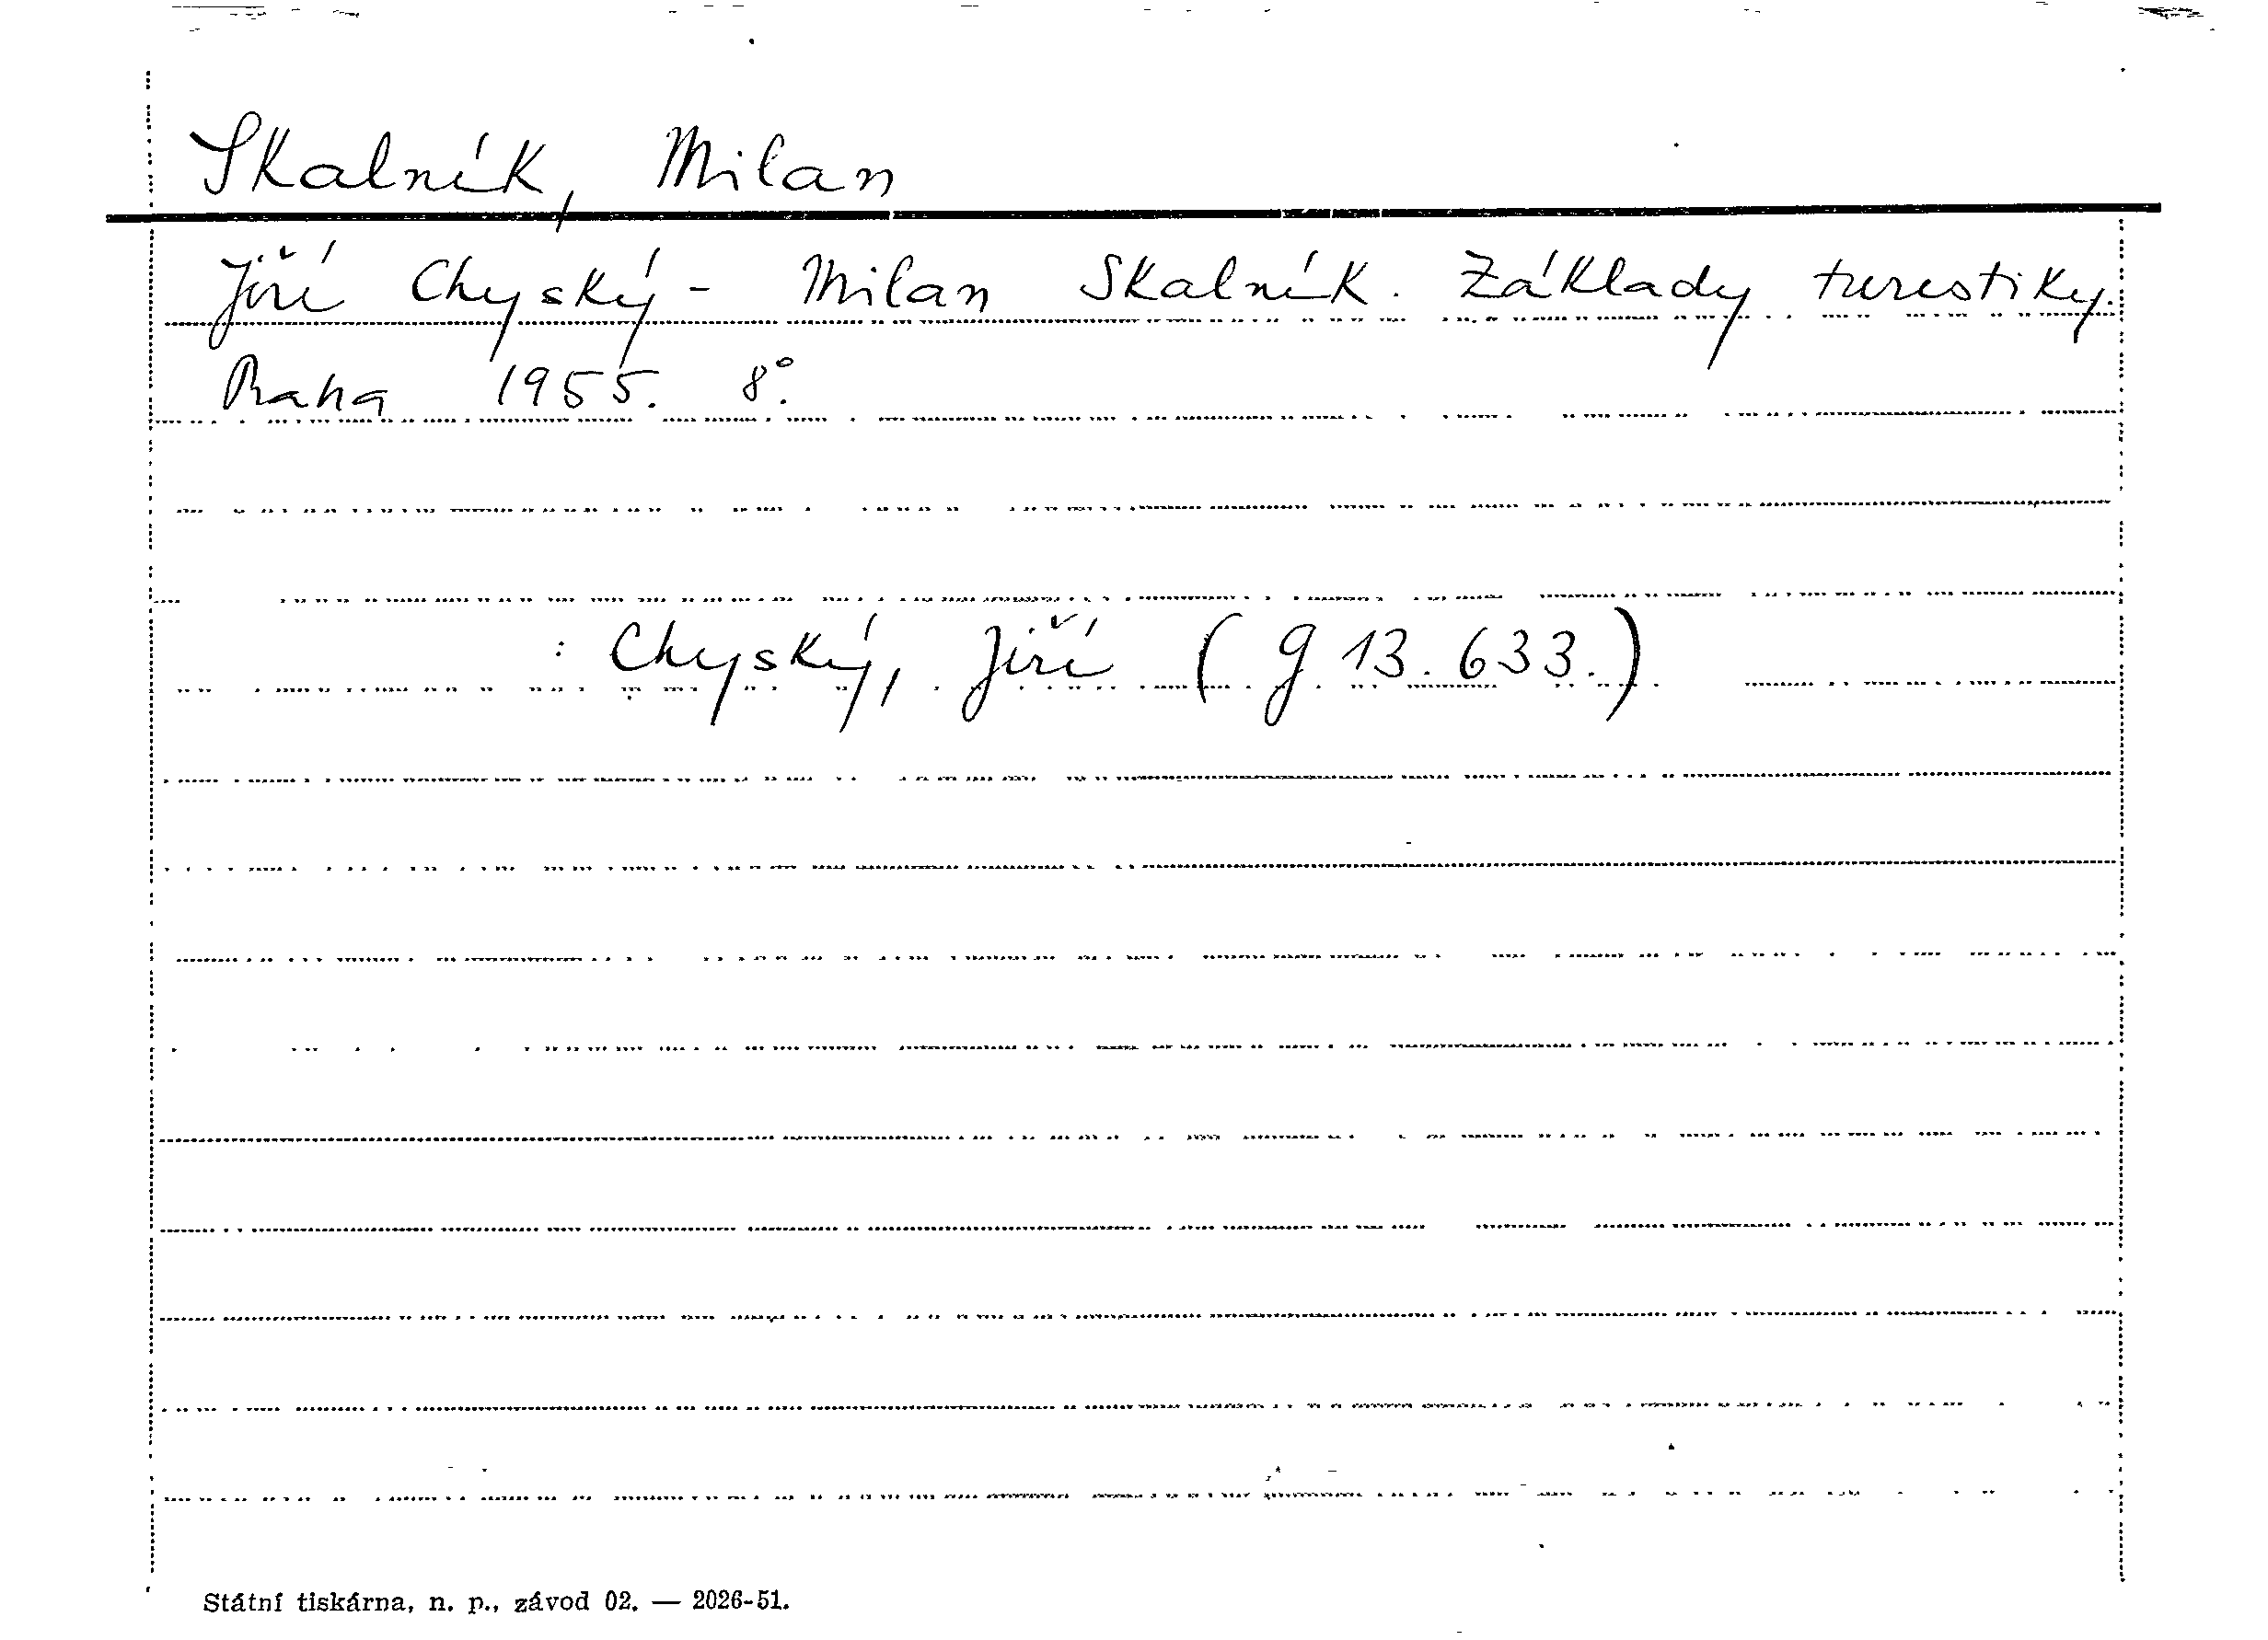 Skalník, Milan
Jiří Chyský - Milan Skalník. Základy turistiky.
Praha 1955. 8°.
: Chyský, Jiří (g 13.633.)
Státní tiskárna, n. p., závod 02. — 2026-51.